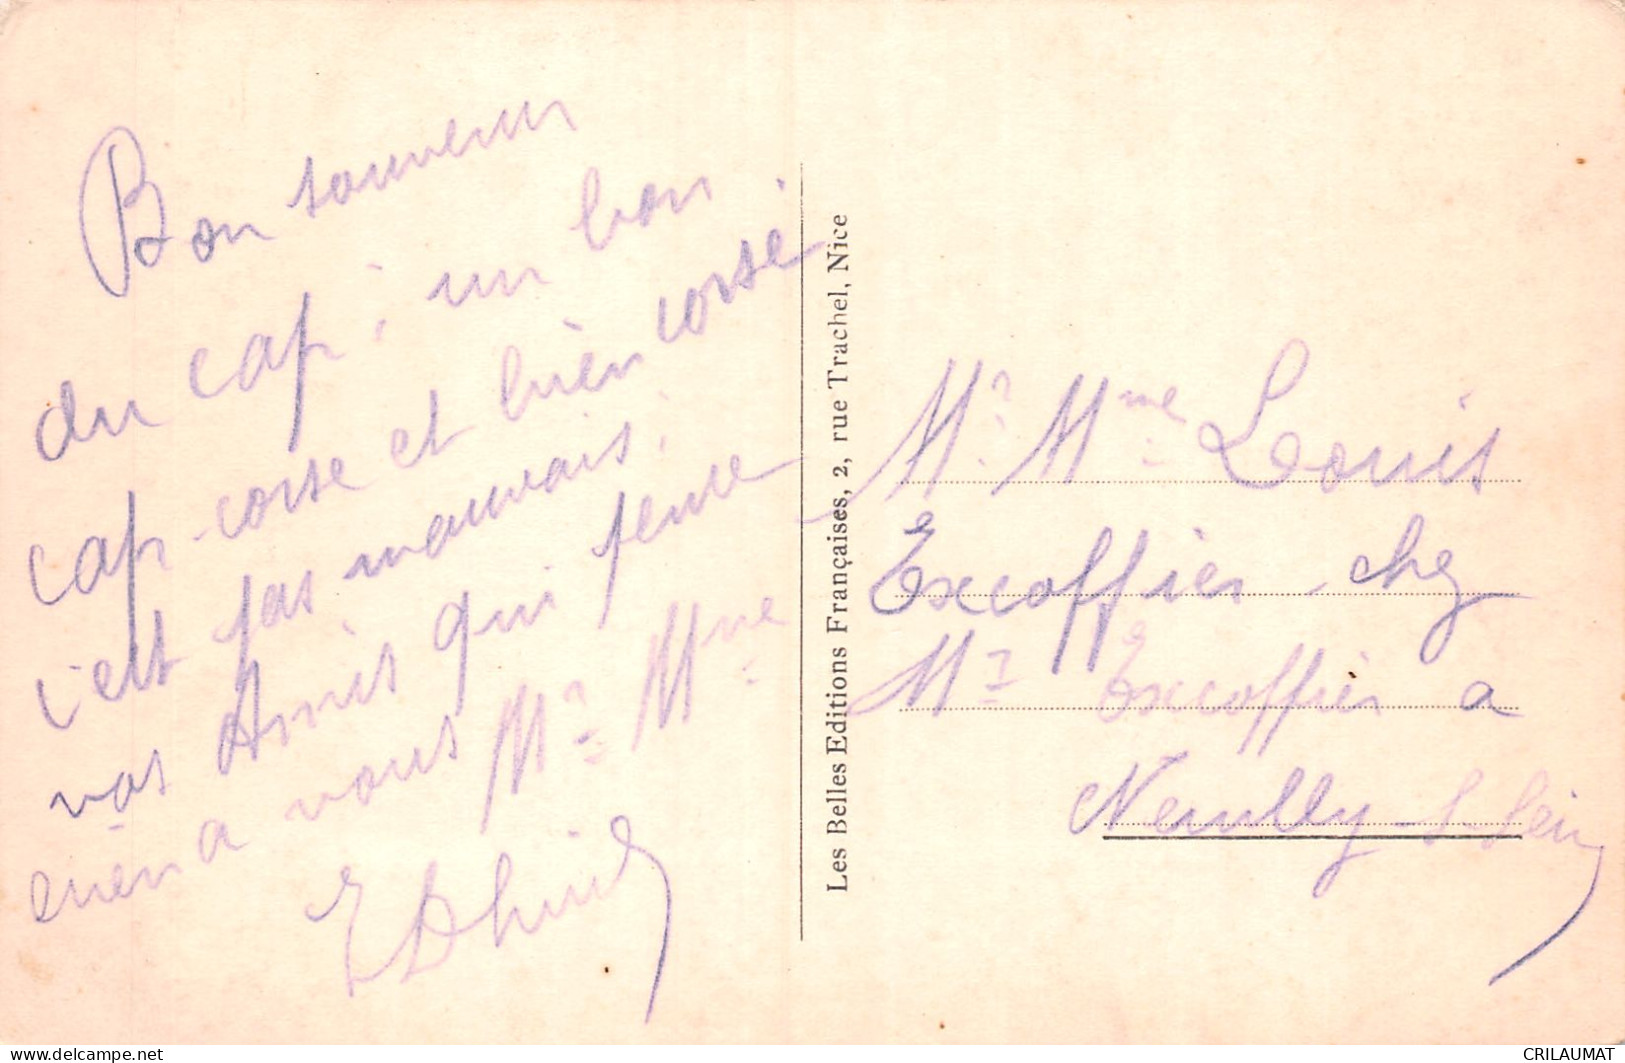 Bon souvenir
du cap, un bon
cap-corse et bien corsé
c'est pas mauvais.
vos Amis qui pense
bien a vous Mr. Mme
Les Belles Editions Françaises, 2, rue Trachel, Nice
Mr. Mme Louis
Excoffier chez
Mr Excoffier a
Neuilly-s-Sein
CRILAUMAT